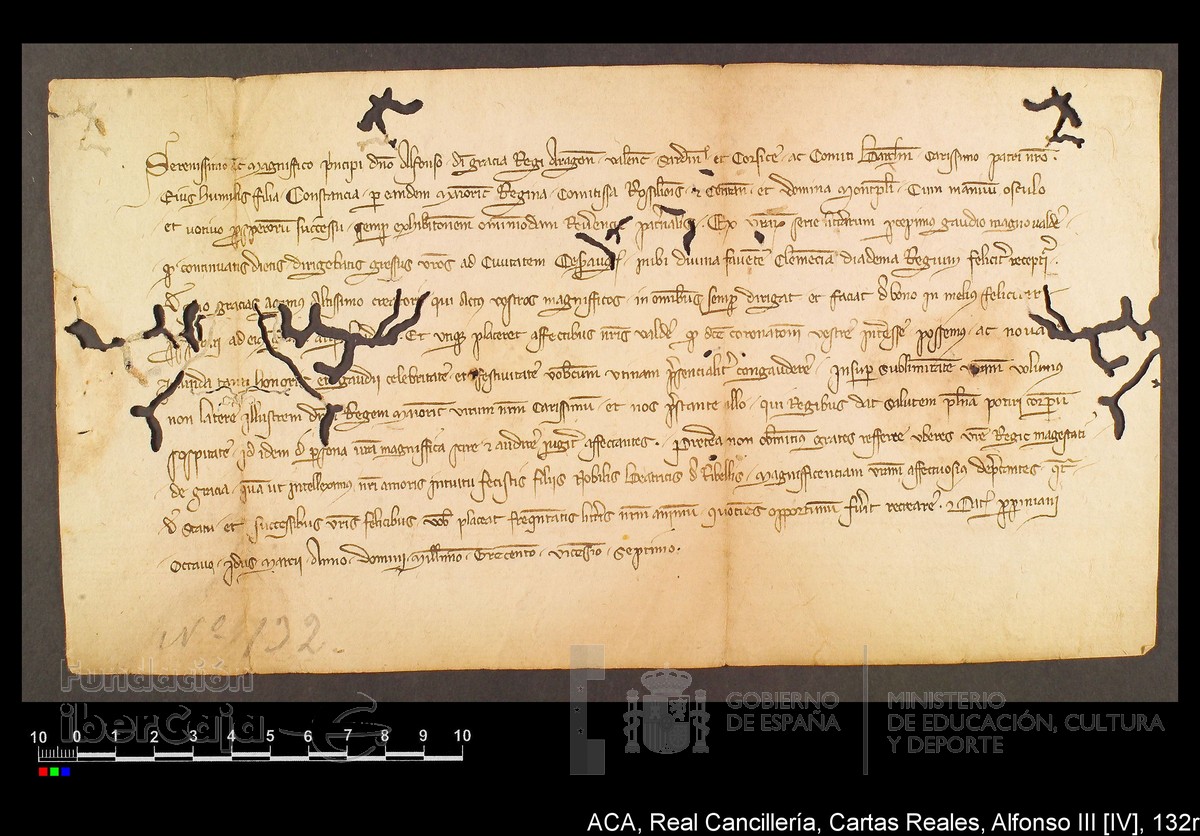 Serenissimo ac Magnifico principi dno Alfonso di gracia Regi Aragon Valenc Sardin et Corsice ac Comiti Barchin Carissimo patri nro
Eius humilis filia Constancia per eandem Maioric Regina Comitissa Rossilionis et Ceritan et domina Montispli Cum manuum osculo
et votivo prosperorum successu semp exhibitionem omnimodam Reverencie paternalis Ex vrarum serie litterarum percepimus gaudio magno valde
qd continuatis dietis dirigebatis gressus vros ad Civitatem Cesaraug inibi divina favente Clemencia diadema Regium felicit recepturi
gracias agimus Altissimo creatori qui Actus vestros magnifficos in omnibus semp dirigat et faciat de bono in melius feliciter
Et utiq placeret affectibus nris valde qd dicte coronationi vestre interesse possemus ac nova
tanti honoris et gaudii celebritate et festivitate vobiscum utinam presencialit congaudere Insup sublimitatem vram volumus
non latere Illustrem dnm Regem Maioric virum nrm Carissimum et nos prestante illo qui Regibus dat salutem plena potiri corporum
sospitate Id idem de persona vra magniffica scire et audire jugit affectantes Preterea non obmittimus grates refferre uberes vre Regie magestati
de gracia quam ut intelleximus nri amoris intuitu fecistis filiis Nobilis Beatricis de Ribellis magnifficenciam vram affectuosius deprecantes qt
de statu et successibus vris felicibus vob placeat frequentatis litteris nrm animum quociens opportunum fuerit recreare Dat Perpiniani
Octavo Idus Marcii Anno domini Millimo Trecento vicesio Septimo
Nº 132.
Fundación
iberCaja
GOBIERNO
DE ESPAÑA
MINISTERIO
DE EDUCACIÓN, CULTURA
Y DEPORTE
10 0 1 2 3 4 5 6 7 8 9 10
ACA, Real Cancillería, Cartas Reales, Alfonso III [IV], 132r